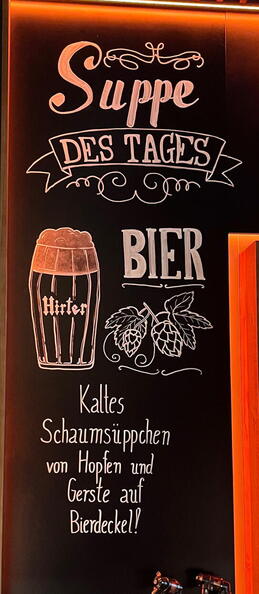 Suppe
DES TAGES
BIER
Hirter
Kaltes
Schaumsüppchen
von Hopfen und
Gerste auf
Bierdeckel!